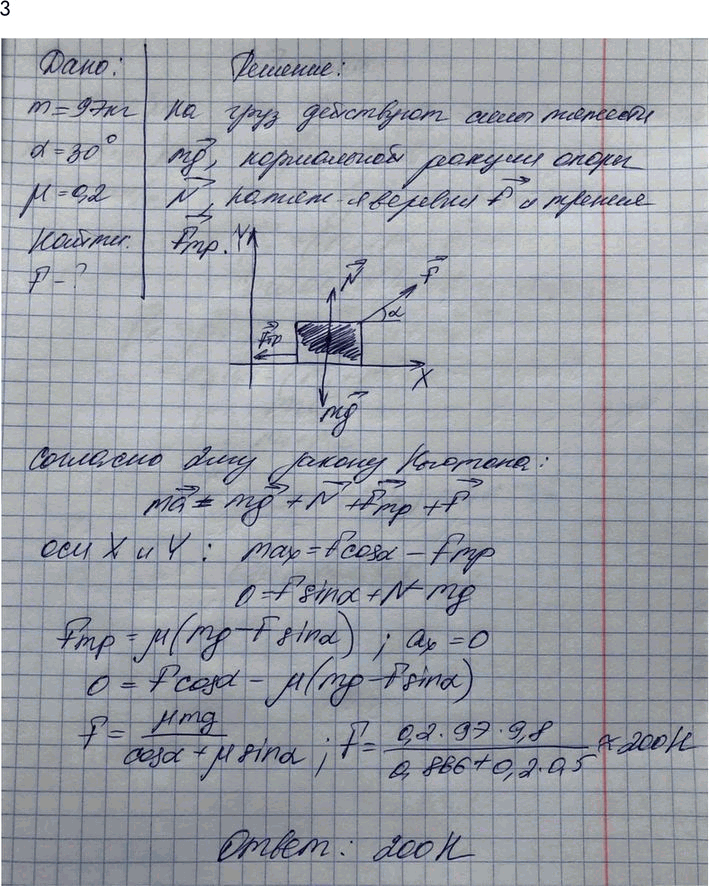 3
Дано: Решение:
m = 97кг на груз действуют силы тяжести
α = 30° mg, нормальной реакции опоры
μ = 0,2 N, натяж-я веревки F и трения
Найти: Fтр.
F - ?
Y
N F
α
Fтр
X
mg
Согласно 2му закону Ньютона:
ma = mg + N + Fтр + F
оси X и Y: max = Fcosα - Fтр
0 = Fsinα + N - mg
Fтр = μ(mg - Fsinα) ; ax = 0
0 = Fcosα - μ(mg - Fsinα)
F = μmg / cosα + μsinα ; F = 0,2 · 97 · 9,8 / 0,866 + 0,2 · 0,5 ≈ 200Н
Ответ: 200Н